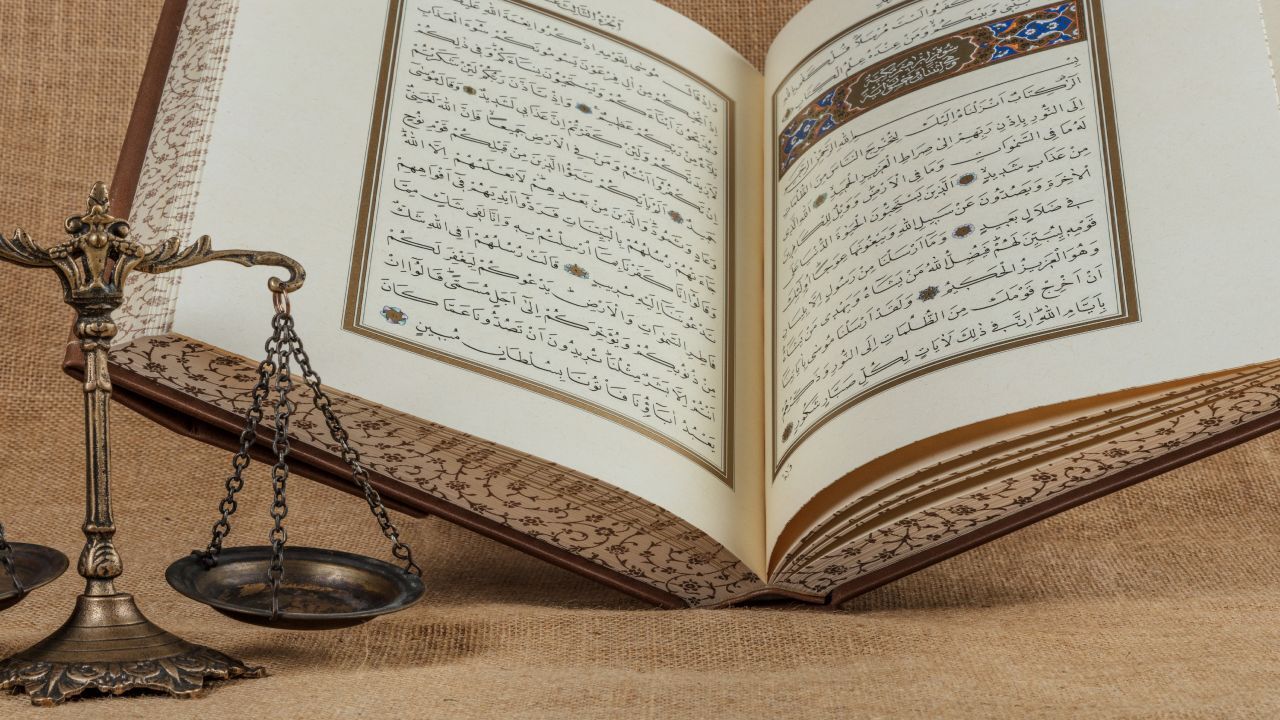 كَفَرُوا لَسْتَ مُرْسَلًا قُلْ كَفٰى
بَيْنِي وَبَيْنَكُمْ وَمَنْ عِنْدَهُ عِلْمُ الْكِتَابِ
سورة ابرهيم مكية
الٓرٰ كِتَابٌ اَنْزَلْنَاهُ اِلَيْكَ لِتُخْرِجَ النَّاسَ مِنَ
اِلَى النُّورِ بِاِذْنِ رَبِّهِمْ اِلٰى صِرَاطِ الْعَزِيزِ الْحَمِيدِ اَللّٰهِ الَّذِي
لَهُ مَا فِي السَّمٰوَاتِ وَمَا فِي الْاَرْضِ وَوَيْلٌ لِلْكَافِرِينَ
مِنْ عَذَابٍ شَدِيدٍ اَلَّذِينَ يَسْتَحِبُّونَ الْحَيٰوةَ الدُّنْيَا عَلَى
الْاٰخِرَةِ وَيَصُدُّونَ عَنْ سَبِيلِ اللّٰهِ وَيَبْغُونَهَا عِوَجًا اُولٰئِكَ
فِي ضَلَالٍ بَعِيدٍ وَمَا اَرْسَلْنَا مِنْ رَسُولٍ اِلَّا بِلِسَانِ
قَوْمِهِ لِيُبَيِّنَ لَهُمْ فَيُضِلُّ اللّٰهُ مَنْ يَشَاءُ وَيَهْدِي مَنْ يَشَاءُ
وَهُوَ الْعَزِيزُ الْحَكِيمُ وَلَقَدْ اَرْسَلْنَا مُوسٰى بِاٰيَاتِنَا
اَنْ اَخْرِجْ قَوْمَكَ مِنَ الظُّلُمَاتِ اِلَى النُّورِ وَذَكِّرْهُمْ
بِاَيَّامِ اللّٰهِ اِنَّ فِي ذٰلِكَ لَاٰيَاتٍ لِكُلِّ صَبَّارٍ شَكُورٍ
وَاِذْ قَالَ مُوسٰى لِقَوْمِهِ اذْكُرُوا نِعْمَةَ اللّٰهِ عَلَيْكُمْ
اِذْ اَنْجٰيكُمْ مِنْ اٰلِ فِرْعَوْنَ يَسُومُونَكُمْ سُوءَ الْعَذَابِ
وَيُذَبِّحُونَ اَبْنَاءَكُمْ وَيَسْتَحْيُونَ نِسَاءَكُمْ وَفِي ذٰلِكُمْ
بَلَاءٌ مِنْ رَبِّكُمْ عَظِيمٌ وَاِذْ تَاَذَّنَ رَبُّكُمْ لَئِنْ شَكَرْتُمْ
لَاَزِيدَنَّكُمْ وَلَئِنْ كَفَرْتُمْ اِنَّ عَذَابِي لَشَدِيدٌ وَقَالَ مُوسٰى
اِنْ تَكْفُرُوا اَنْتُمْ وَمَنْ فِي الْاَرْضِ جَمِيعًا فَاِنَّ اللّٰهَ لَغَنِيٌّ
حَمِيدٌ اَلَمْ يَاْتِكُمْ نَبَؤُا الَّذِينَ مِنْ قَبْلِكُمْ قَوْمِ نُوحٍ
وَعَادٍ وَثَمُودَ وَالَّذِينَ مِنْ بَعْدِهِمْ لَا يَعْلَمُهُمْ اِلَّا اللّٰهُ
جَاءَتْهُمْ رُسُلُهُمْ بِالْبَيِّنَاتِ فَرَدُّوا اَيْدِيَهُمْ فِي اَفْوَاهِهِمْ
وَقَالُوا اِنَّا كَفَرْنَا بِمَا اُرْسِلْتُمْ بِهِ وَاِنَّا لَفِي شَكٍّ مِمَّا
تَدْعُونَنَا اِلَيْهِ مُرِيبٍ قَالَتْ رُسُلُهُمْ اَفِي اللّٰهِ شَكٌّ
فَاطِرِ السَّمٰوَاتِ وَالْاَرْضِ يَدْعُوكُمْ لِيَغْفِرَ لَكُمْ
مِنْ ذُنُوبِكُمْ وَيُؤَخِّرَكُمْ اِلٰى اَجَلٍ مُسَمًّى قَالُوا اِنْ
اَنْتُمْ اِلَّا بَشَرٌ مِثْلُنَا تُرِيدُونَ اَنْ تَصُدُّونَا عَمَّا كَانَ
يَعْبُدُ اٰبَاؤُنَا فَاْتُونَا بِسُلْطَانٍ مُبِينٍ